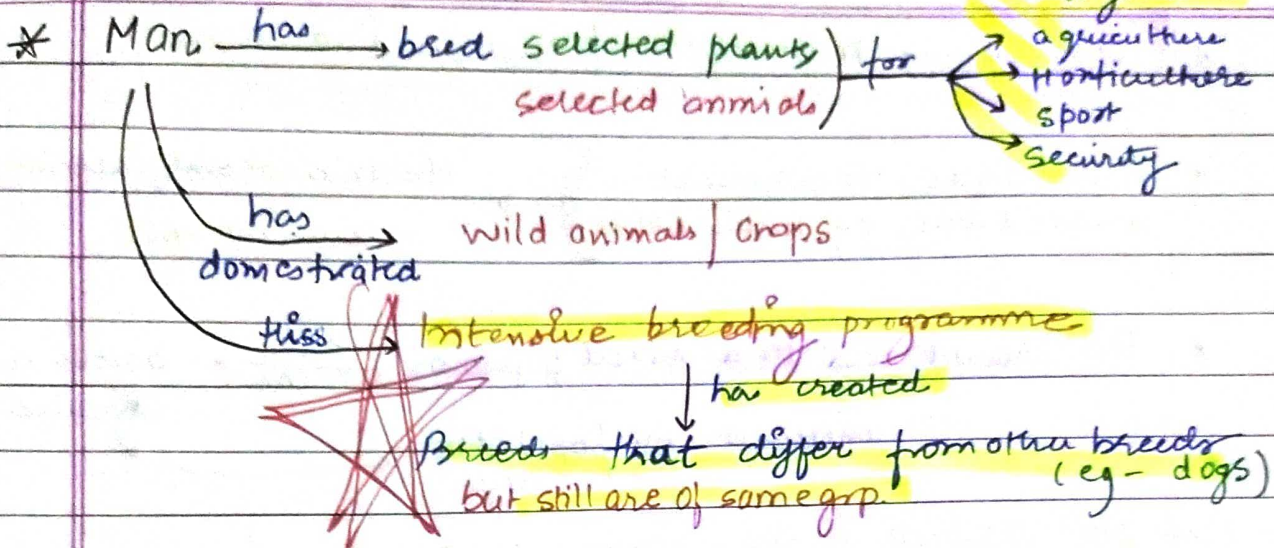 * Man has bred selected plants
selected anmials
for
agriculture
Horticulture
sport
security
has
domestrated
wild animals | crops
thiss
Intensive breeding programme
has created
Breeds that differ from other breeds
(eg - dogs)
but still are of same grp.